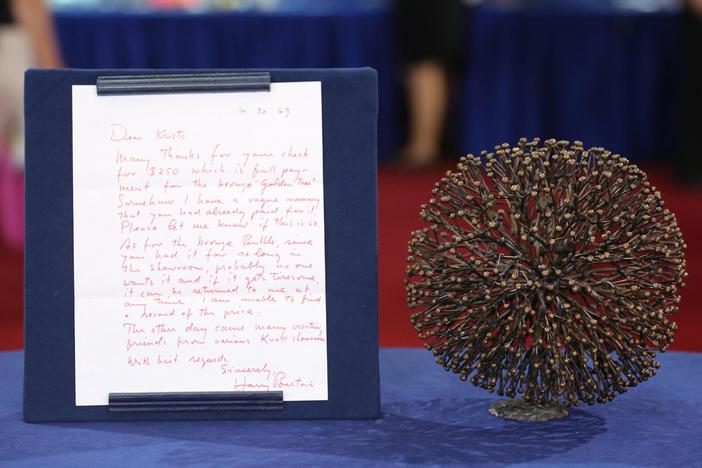 4. 30. 69
Dear Krista
Many thanks for your check
for $250 which is full pay-
ment for the bronze "Golden Tree"
Somehow I have a vague memory
that you had already paid for it!
Please let me know if this is so.
As for the bronze Bauble, since
you had it for so long in
the showroom, probably no one
wants it and if it gets tiresome,
it can be returned to me at
any time. I am unable to find
a record of the price.
The other day came many visiting
friends from various Knoll showrooms
With best regards.
Sincerely,
Harry Bertoia